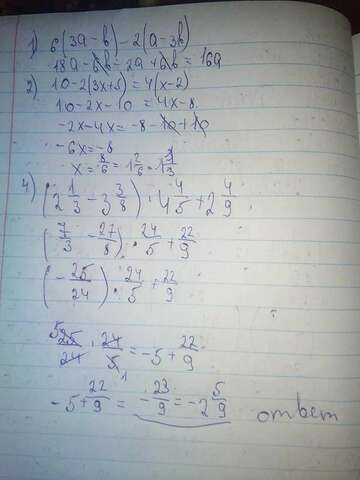 1) 6(3a-b)-2(a-3b)
18a-6b-2a+6b=16a
2) 10-2(3x+5)=4(x-2)
10-2x-10=4x-8
-2x-4x=-8-10+10
-6x=-8
x=8/6=1 2/6=1 1/3
4) (2 1/3-3 3/8)·4 4/5+2 4/9
(7/3-27/8)·24/5+22/9
(-25/24)·24/5+22/9
25/24·24/5=-5+22/9
-5+22/9=-23/9=-2 5/9 ответ